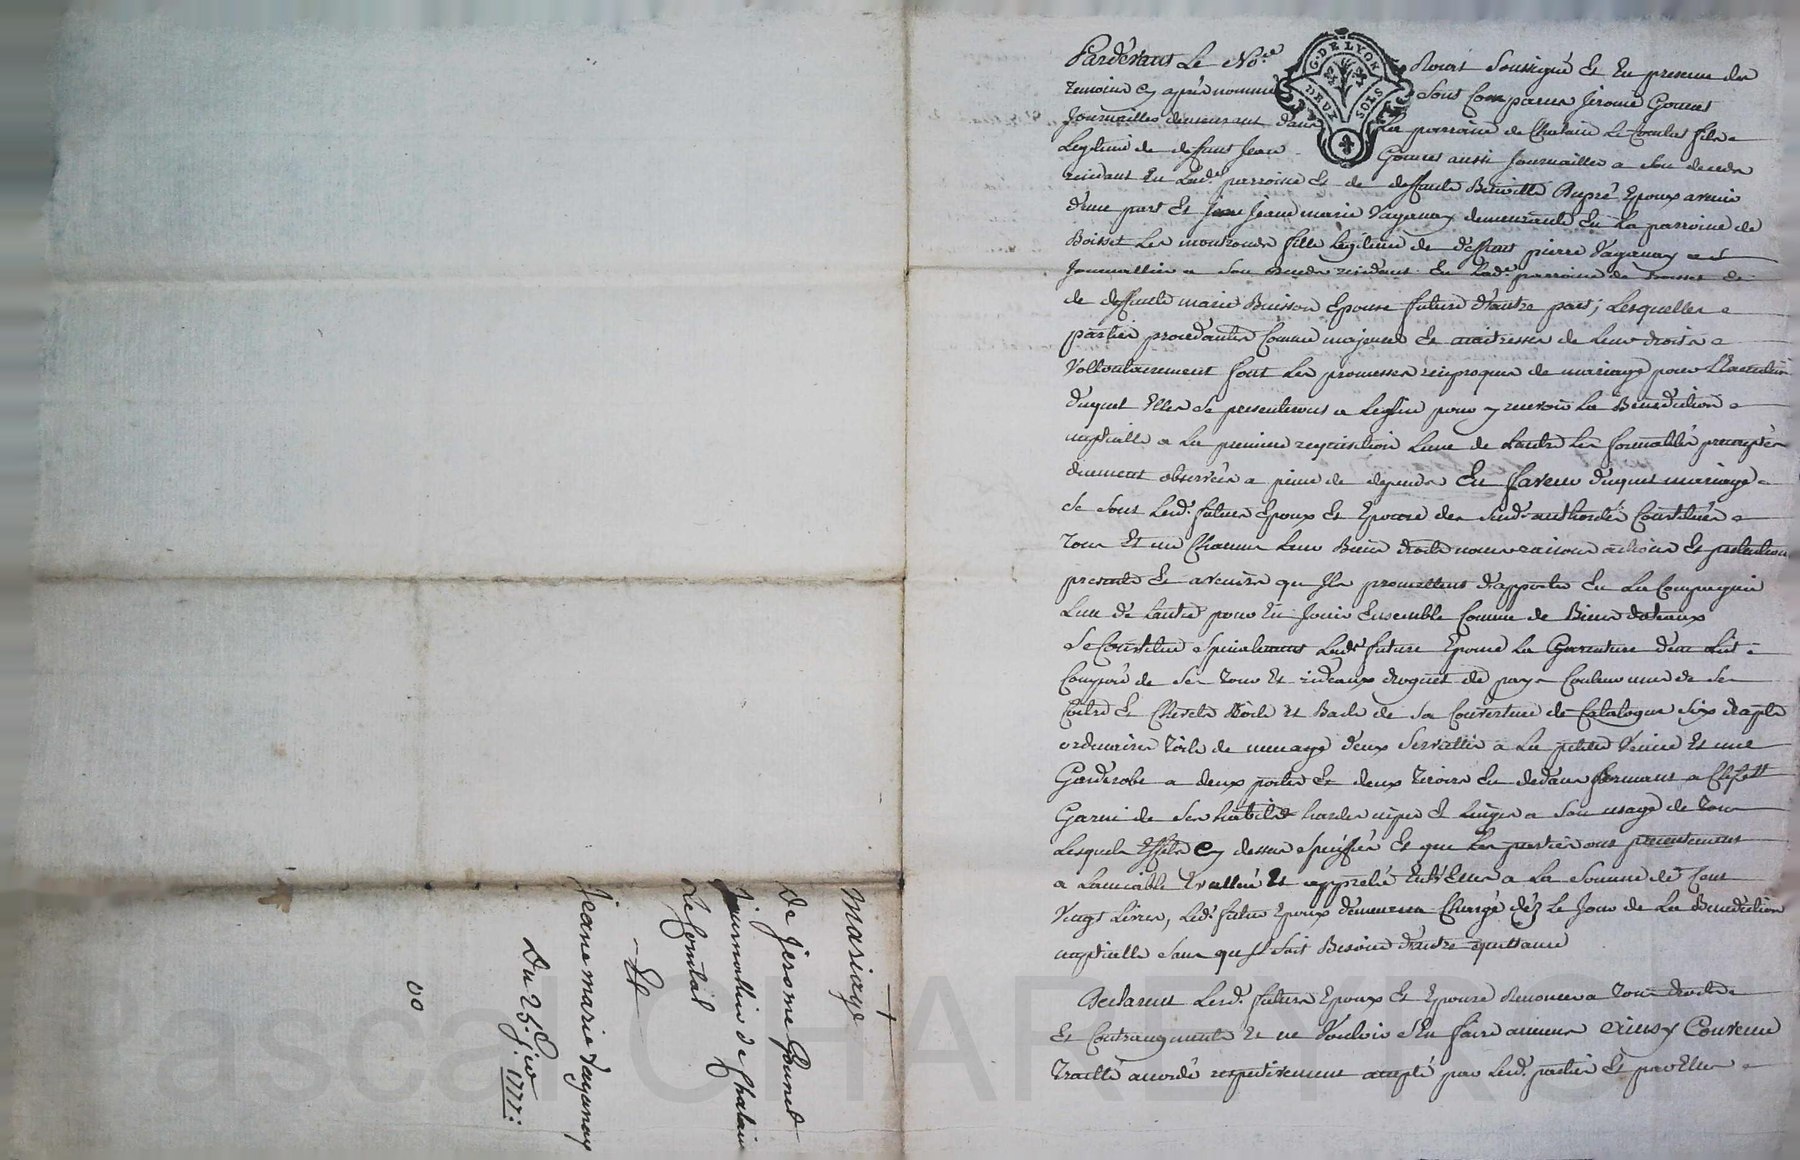 Pardevant Le No.re Royal Soussigné Et En presence des
temoins Cy après nommés Sont Comparus Jérome Gounet
G. DE LYON
DEUX SOLS
Journaillier demeurant dans La parroisse de Chalain Le Comtal fils
Legitime de deffunt Jean Gounet aussi Journaillier a son decedz
residant En Lad.e parroisse Et de deffunte Benoitte Dupré Epoux avenir
d'une part Et Jeane marie Vaganay demeurante En La parroisse de
Boisset Les montronds fille Legitime de deffunt pierre Vaganay
Journaillier a Son decedz residant En Lad.e parroisse de Boisset Et
de deffunte marie Buisson Epouse future d'autre part; Lesquelles
parties procedantes Comme majeures Et maitresses de Leurs droits
Vollontairement font Les promesses reciproques de mariage pour
duquel Elles Se presenteront a Leglise pour y recevoir La Benediction
nuptialle a La premiere requisition Lune de Lautre Les formalités
duement observées a peine de depends En faveur duquel mariage
Se Sont Lesd. futurs Epoux Et Epouse des Susd. authorités Constitués
Tous Et un Chacun Leurs Biens droits noms raisons actions Et pretentions
presents Et avenirs qu'Ils promettent d'apporter En La Compagnie
Lun de Lautre pour En Jouir Ensemble Comme de Biens doteaux
Se Constitue Specialement Lad.e future Epouse La Garniture d'un Lit
Composé de Son Tour Et rideaux droguet de pays Couleur de Sa
Coitre Et Chevet Toile Et de Sa Couverture de Catalogne Six draps
ordinaires Toile de menage deux Serviettes a La petite Venise Et une
Garderobe a deux portes Et deux Tiroirs En dedans fermant a Clef
Garni de Ses habits hardes nipes Et Linges a Son usage de Tous
Lesquels Effets Cy dessus Specifiés Et que Les parties ont presentement
a Lamiable Evallué Et apprecié Entr'Elles a La Somme de Cent
Vingt Livres, Led. futur Epoux demeurera Chargé dez Le Jour de La Benediction
nuptialle Sans qu'Il Soit Besoin d'autre quittance
Declarent Lesd. futurs Epoux Et Epouse Renoncer a Tous droits
Et Et ne Vouloir En faire aucuns ainsy Convenu
Traitté accordé respectivement accepté par Lesd. parties Et par Elles
Mariage
De jerosme Gounet
journallier de chalain
Le Comtal
- Et -
jeane marie Vaganay
Du 25. J.er 1777:
00
ascal CHAREYRON